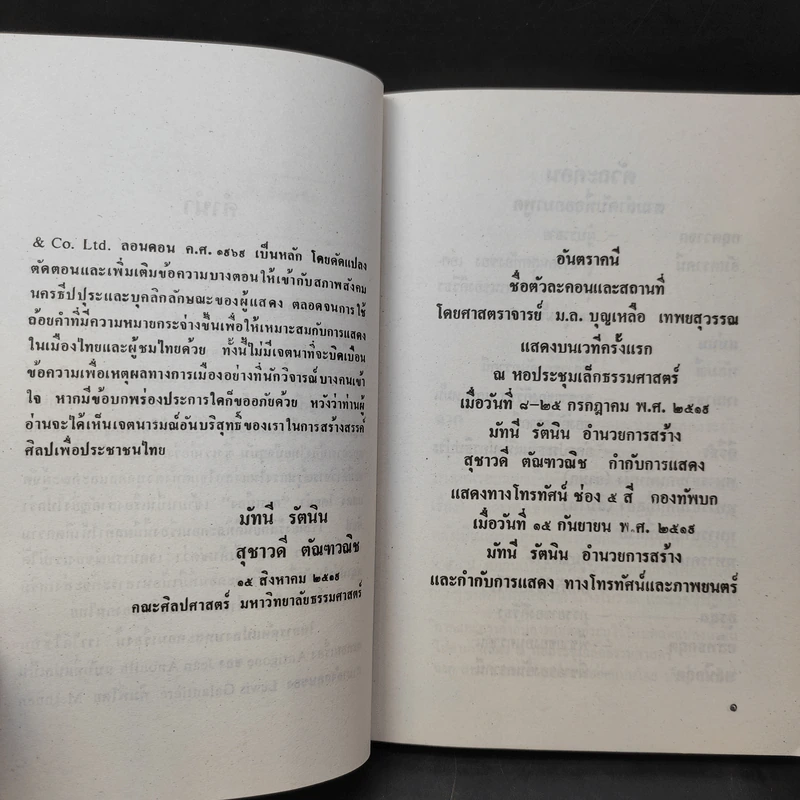 & Co. Ltd. ลอนดอน ค.ศ. ๑๙๖๙ เป็นหลัก โดยดัดแปลง
ตัดตอนและเพิ่มเติมข้อความบางตอนให้เข้ากับสภาพสังคม
นครธีปปุระและบุคลิกลักษณะของผู้แสดง ตลอดจนการใช้
ถ้อยคำที่มีความหมายกระจ่างขึ้นเพื่อให้เหมาะสมกับการแสดง
ในเมืองไทยและผู้ชมไทยด้วย ทั้งนี้ไม่มีเจตนาที่จะบิดเบือน
ข้อความเพื่อเหตุผลทางการเมืองอย่างที่นักวิจารณ์บางคนเข้า
ใจ หากมีข้อบกพร่องประการใดก็ขออภัยด้วย หวังว่าท่านผู้
อ่านจะได้เห็นเจตนารมณ์อันบริสุทธิ์ของเราในการสร้างสรรค์
ศิลปเพื่อประชาชนไทย
มัทนี รัตนิน
สุชาวดี ตัณฑวณิช
๑๕ สิงหาคม ๒๕๑๙
คณะศิลปศาสตร์ มหาวิทยาลัยธรรมศาสตร์
อันตราคนี
ชื่อตัวละคอนและสถานที่
โดยศาสตราจารย์ ม.ล. บุญเหลือ เทพยสุวรรณ
แสดงบนเวทีครั้งแรก
ณ หอประชุมเล็กธรรมศาสตร์
เมื่อวันที่ ๘–๒๕ กรกฎาคม พ.ศ. ๒๕๑๙
มัทนี รัตนิน อำนวยการสร้าง
สุชาวดี ตัณฑวณิช กำกับการแสดง
แสดงทางโทรทัศน์ ช่อง ๕ สี กองทัพบก
เมื่อวันที่ ๑๕ กันยายน พ.ศ. ๒๕๑๙
มัทนี รัตนิน อำนวยการสร้าง
และกำกับการแสดง ทางโทรทัศน์และภาพยนตร์
๑